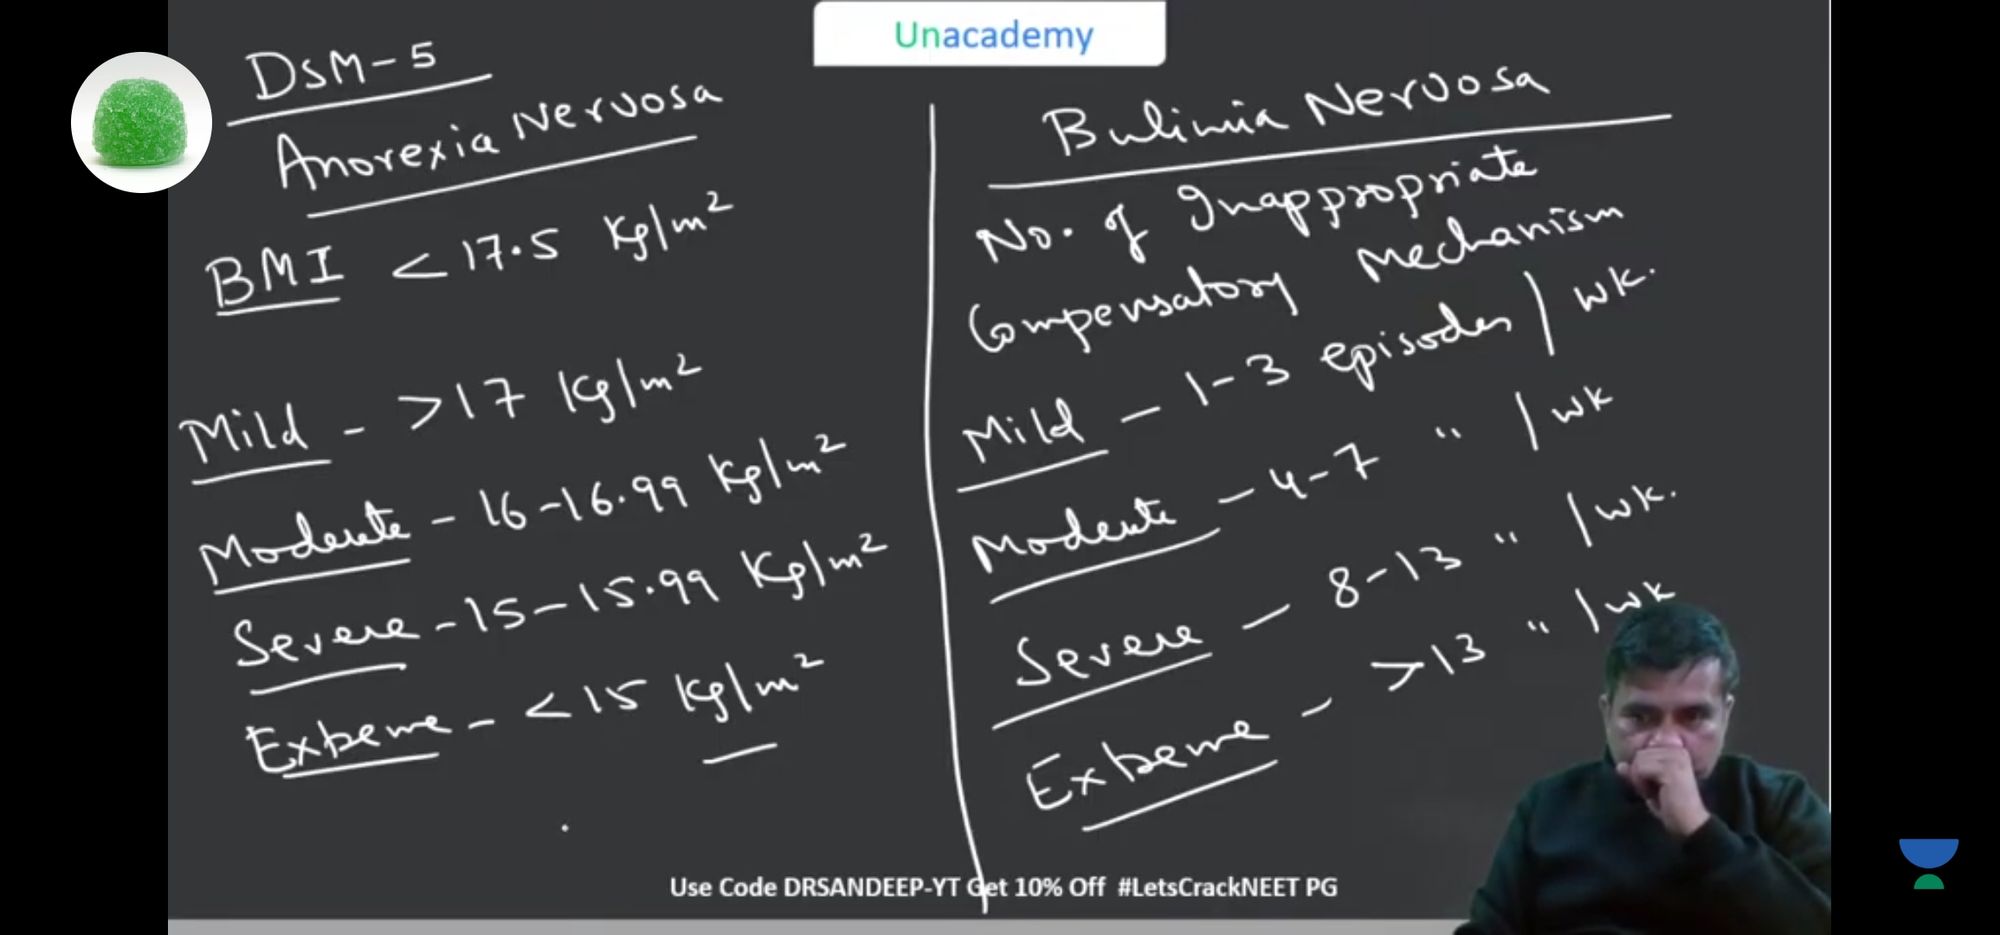 Unacademy
DSM-5
Anorexia Nervosa
BMI < 17.5 Kg/m²
Mild - >17 Kg/m²
Moderate - 16-16.99 Kg/m²
Severe - 15-15.99 Kg/m²
Extreme - <15 Kg/m²
Bulimia Nervosa
No. of Inappropriate
Compensatory Mechanism
Mild - 1-3 episodes/wk.
Moderate - 4-7 " /wk
Severe - 8-13 " /wk.
Extreme - >13 " /wk
Use Code DRSANDEEP-YT Get 10% Off #LetsCrackNEET PG